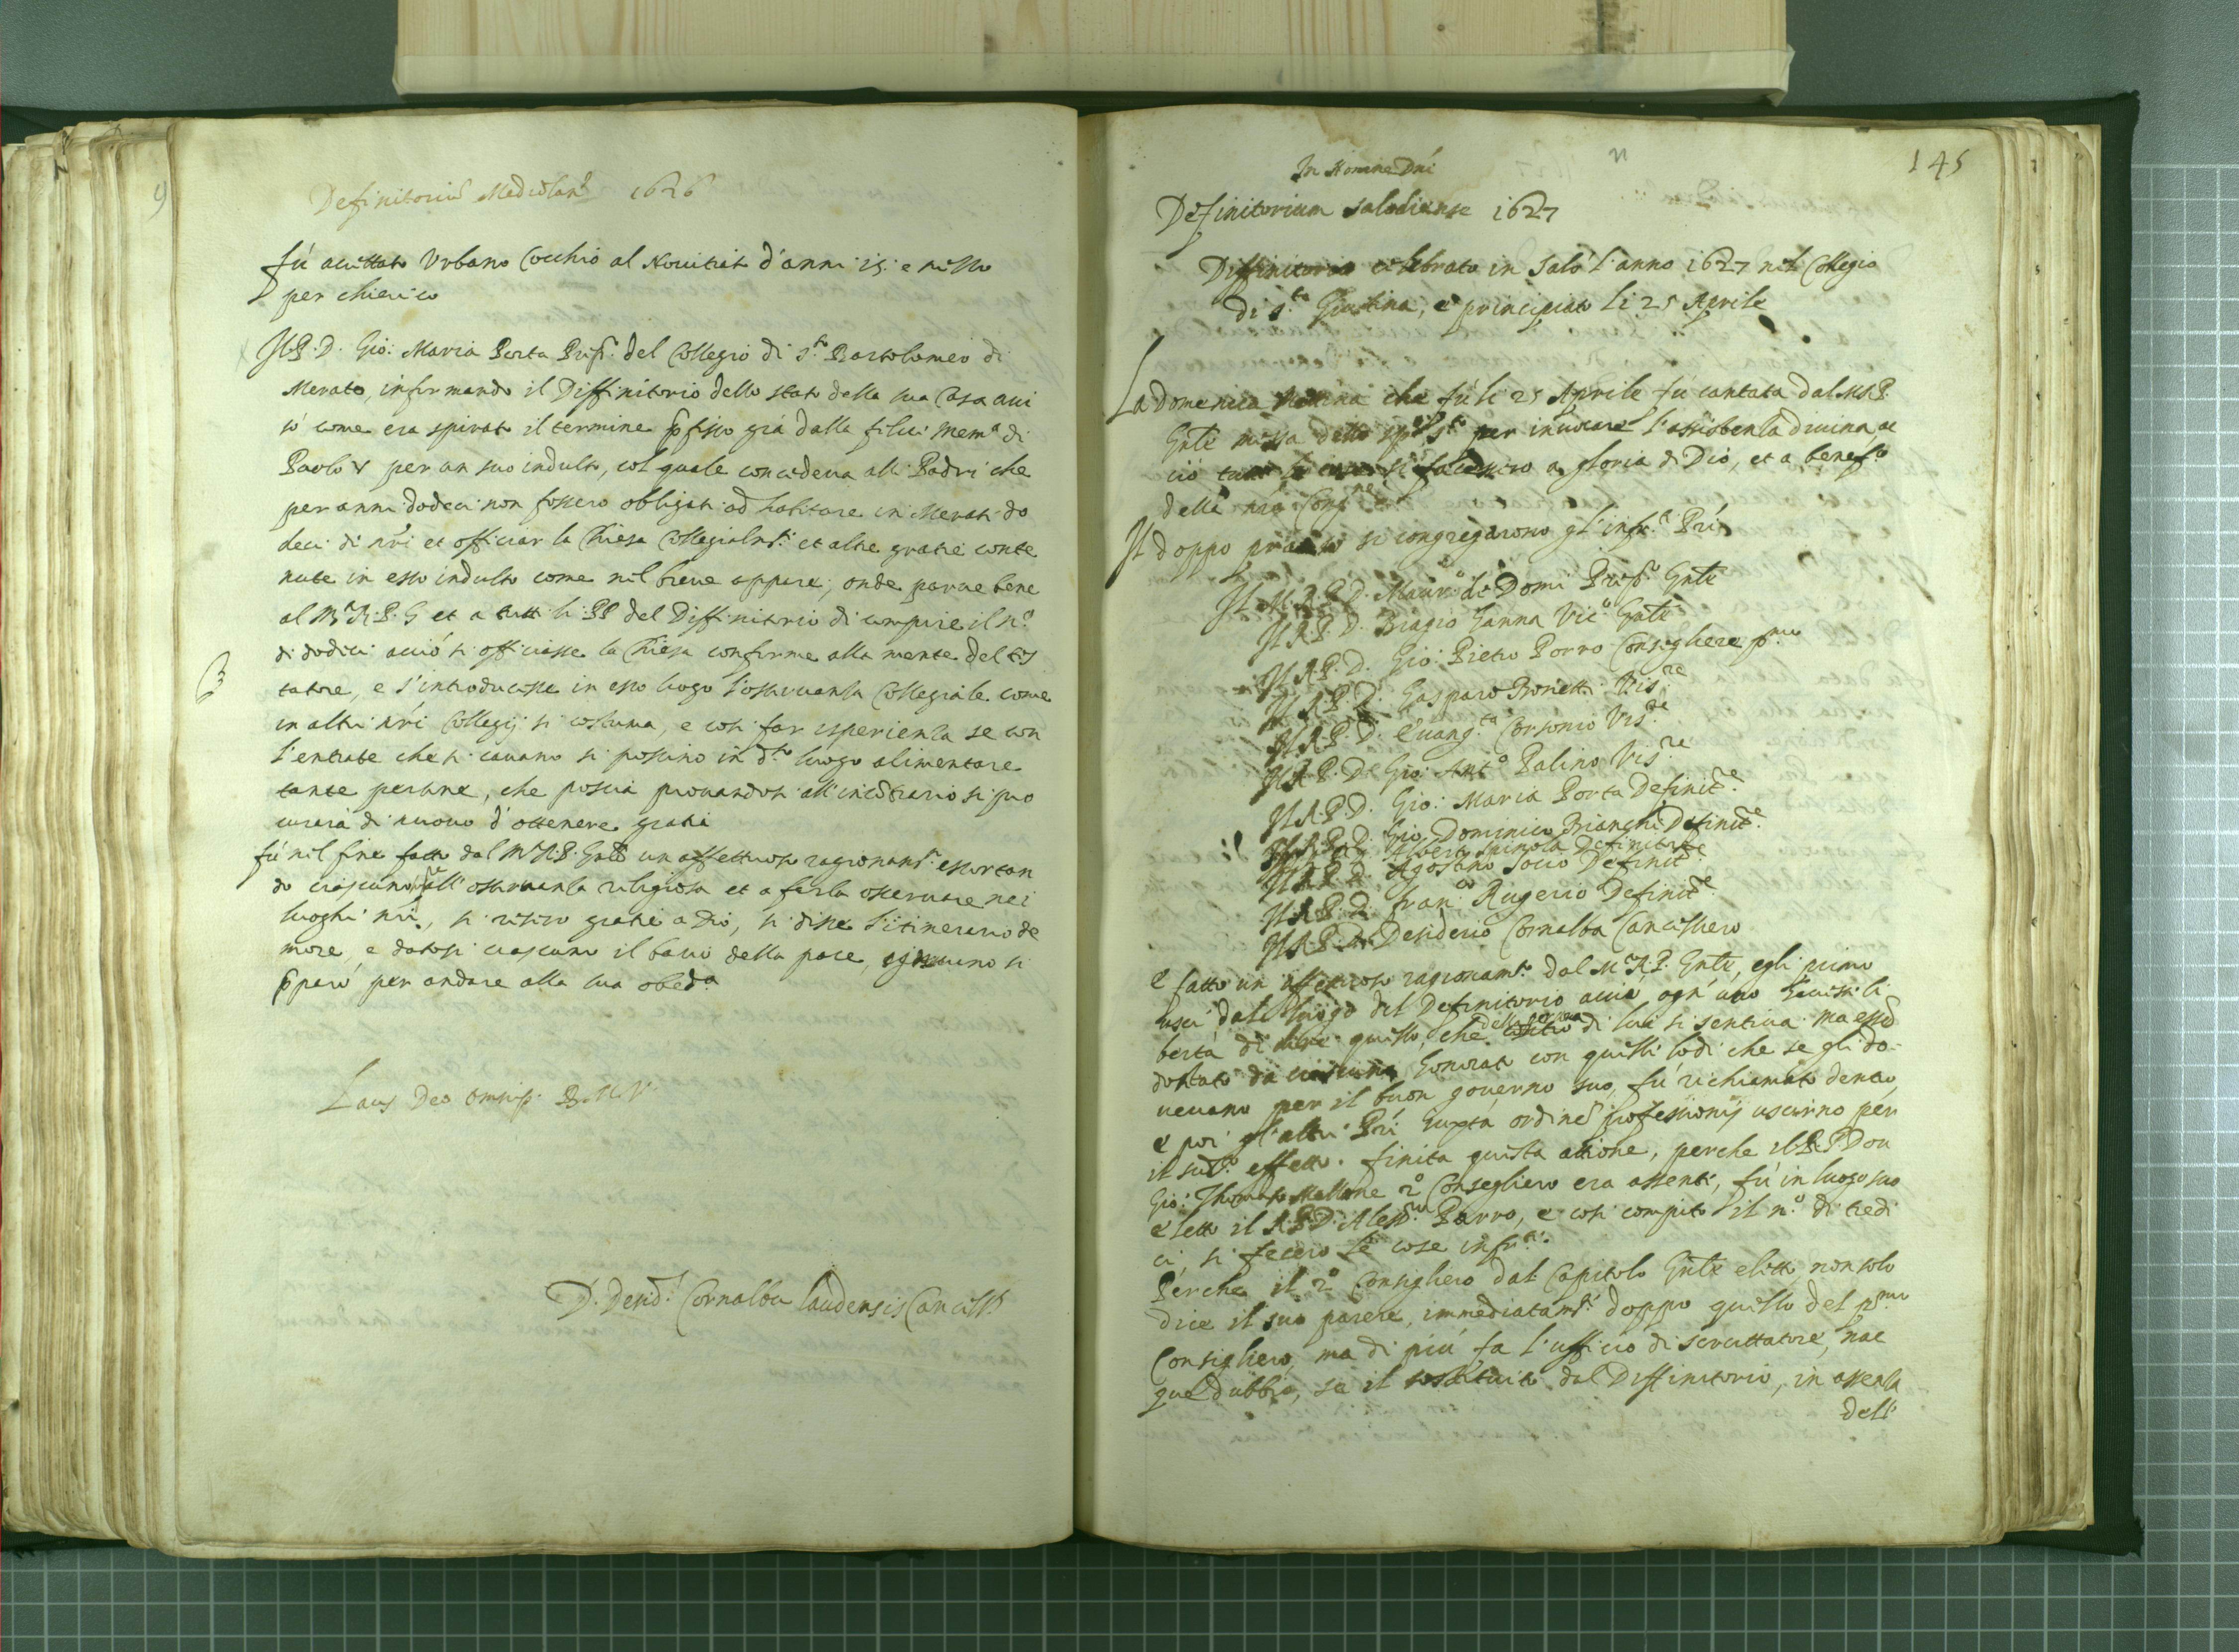 Definitoriũ Mediolan. 1626
fù accettato Urbano Cocchio al Novitiat d'anni 15. e nisso
per chierico
Il P. D. Gio: Maria Porta Prep.to del Collegio di s.to Bartolomeo di
Merato, informando il Diffinitorio dello stato della sua Casa avi
sò come era spirato il termine p̃fisso già dalla felice mem.a di
Paolo V per un suo indulto, col quale concedeva alli Padri che
per anni dodeci non fossero obligati ad habitare in Merati do
deci di nr̃i et officiar la Chiesa Collegialm.te et altre gratie conte
nute in esso indulto come nel breve appare; onde parve bene
al M.R.P.G et a tutti li PP del Diffinitorio di compire il n.o
di dodici acciò si officiasse la Chiesa conforme alla mente del tes
tatore, e s'introducesse in esso luogo l'osservanza Collegiale come
in altri nr̃i Collegij si costuma, e così far esperienza se con
l'entrate che si cavano si possino in d.to luogo alimentare
tante persone, che poscia provandosi all'incõtrario si pro
curarà di nuovo d'ottenere gratia
fù nel fine fatto dal M.R.P. Gñle un affettuoso ragionam.to essortan
do ciascuno all'osservanza religiosa et a farla osservare nei
luoghi nr̃i, si resero gratie a Dio, si disse l'itinerario de
more, e datosi ciascuno il bacio della pace, ognuno si
p̃parò per andare alla sua obed.a
Laus Deo omnip. B.M.V.
D. Desid. Cornalba Laudensis Cancell.s
145
In Nomine Dñi
Definitorium Salodiense 1627
Diffinitorio celebrato in Salò l'anno 1627 nel Collegio
di s.ta Giustina, e principiato li 25 Aprile
La domenica mattina che fù li 25 Aprile fu cantata dal M.R.P.
Gñle messa dello sp.o S.to per invocare l'assistenza divina, ac
ciò tutte le cose si facessero a gloria di Dio, et a benef.o
della nr̃a Cong.ne
Il doppo pranso si congregarono gl'infr.i Pr̃i
Il M.R.P.D. Mauro de Domi Prep.o Gñle
Il R.P.D. Biagio Ganna Vic.o Gñle
Il R.P.D. Gio: Pietro Porro Consegliere p.mo
Il R.P.D. Gasparo Bonetti Vis.re
Il R.P.D. Evang.ta Corsonio Vis.re
Il R.P.D. Gio: Ant.o Palino Vis.re
Il R.P.D. Gio: Maria Porta Definit.e
Il R.P.D. Gio. Dominico Bianchi Definit.e
Alberto Spinola Definitore
Il R.P.D. Agostino Socio Definit.e
Il R.P.D. Fran.co Rugerio Definit.e
Il R.P.D. Desiderio Cornalba Cancelliero
E fatto un affettuoso ragionam.to dal M.R.P. Gñle, egli primo
uscì dal luogo del Definitorio acciò ogn'uno havesse li
bertà di dire quello, che della persona di lui si sentiva ma essẽ
do stato da ciascuno honorato con quelle lodi che se gli do-
vevano per il buon governo suo, fù richiamato dentro,
e poi gl'altri Pr̃i iuxta ordinẽ professionis uscirno per
il sud.o effetto. Finita questa attione, perche il R.P. Don
Gio: Thomaso Mellone 2.o Consegliero era assente, fù in luogo suo
eletto il R.P.D. Aless.ro Porro, e così compito il n.o di tredi
ci, si fecero le cose infr.e.
Perche il 2.o Consigliero dal Capitolo Gñle eletto non solo
dice il suo parere, immediatam.te doppo quello del p.mo
Consigliero, ma di più fa l'ufficio di scruttatore, nac
que dubbio, se il sostituito dal Diffinitorio, in assenza
dell'